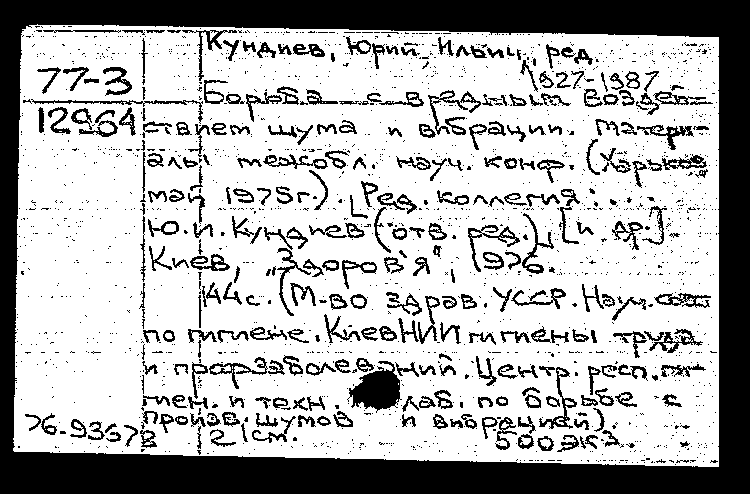 Кундиев, Юрий Ильич, ред
1927-1987
77-3
12964
Борьба с вредным воздей-
ствием шума и вибрации. Матери-
алы межобл. науч. конф. (Харьков
май 1975г.). [Ред. коллегия: ...
Ю.И. Кундиев (отв. ред.), [и др.].
Киев, „Здоров'я", 1976.
144с. (М-во здрав. УССР. Науч.
по гигиене. Киев НИИ гигиены труда
и профзаболеваний. Центр. респ. ги-
гиен. и техн. лаб. по борьбе с
произв. шумов и вибрацией).
76-9367 21см. 500экз.